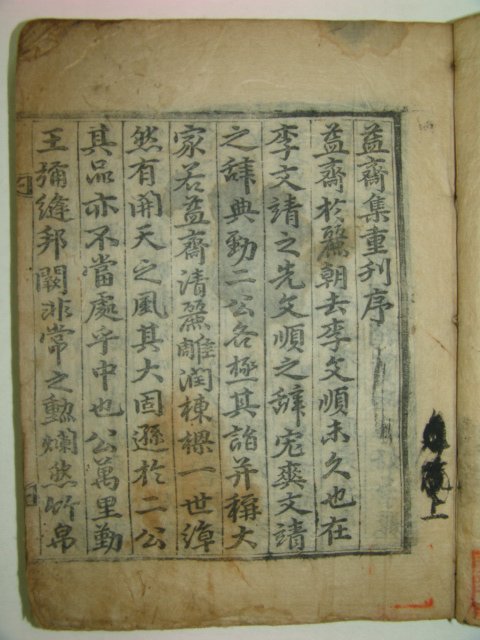 益齋集重刊序
益齋於麗朝去李文順未久也在
李文靖之先文順之辞宏奭文靖
之辞典勁二公各極其詣并稱大
家若益齋清麗雕潤棟樑一世倬
然有開天之風其大固遜於二公
其品亦不當處乎中也公萬里勤
王彌縫邦闕非常之勲爛然竹帛